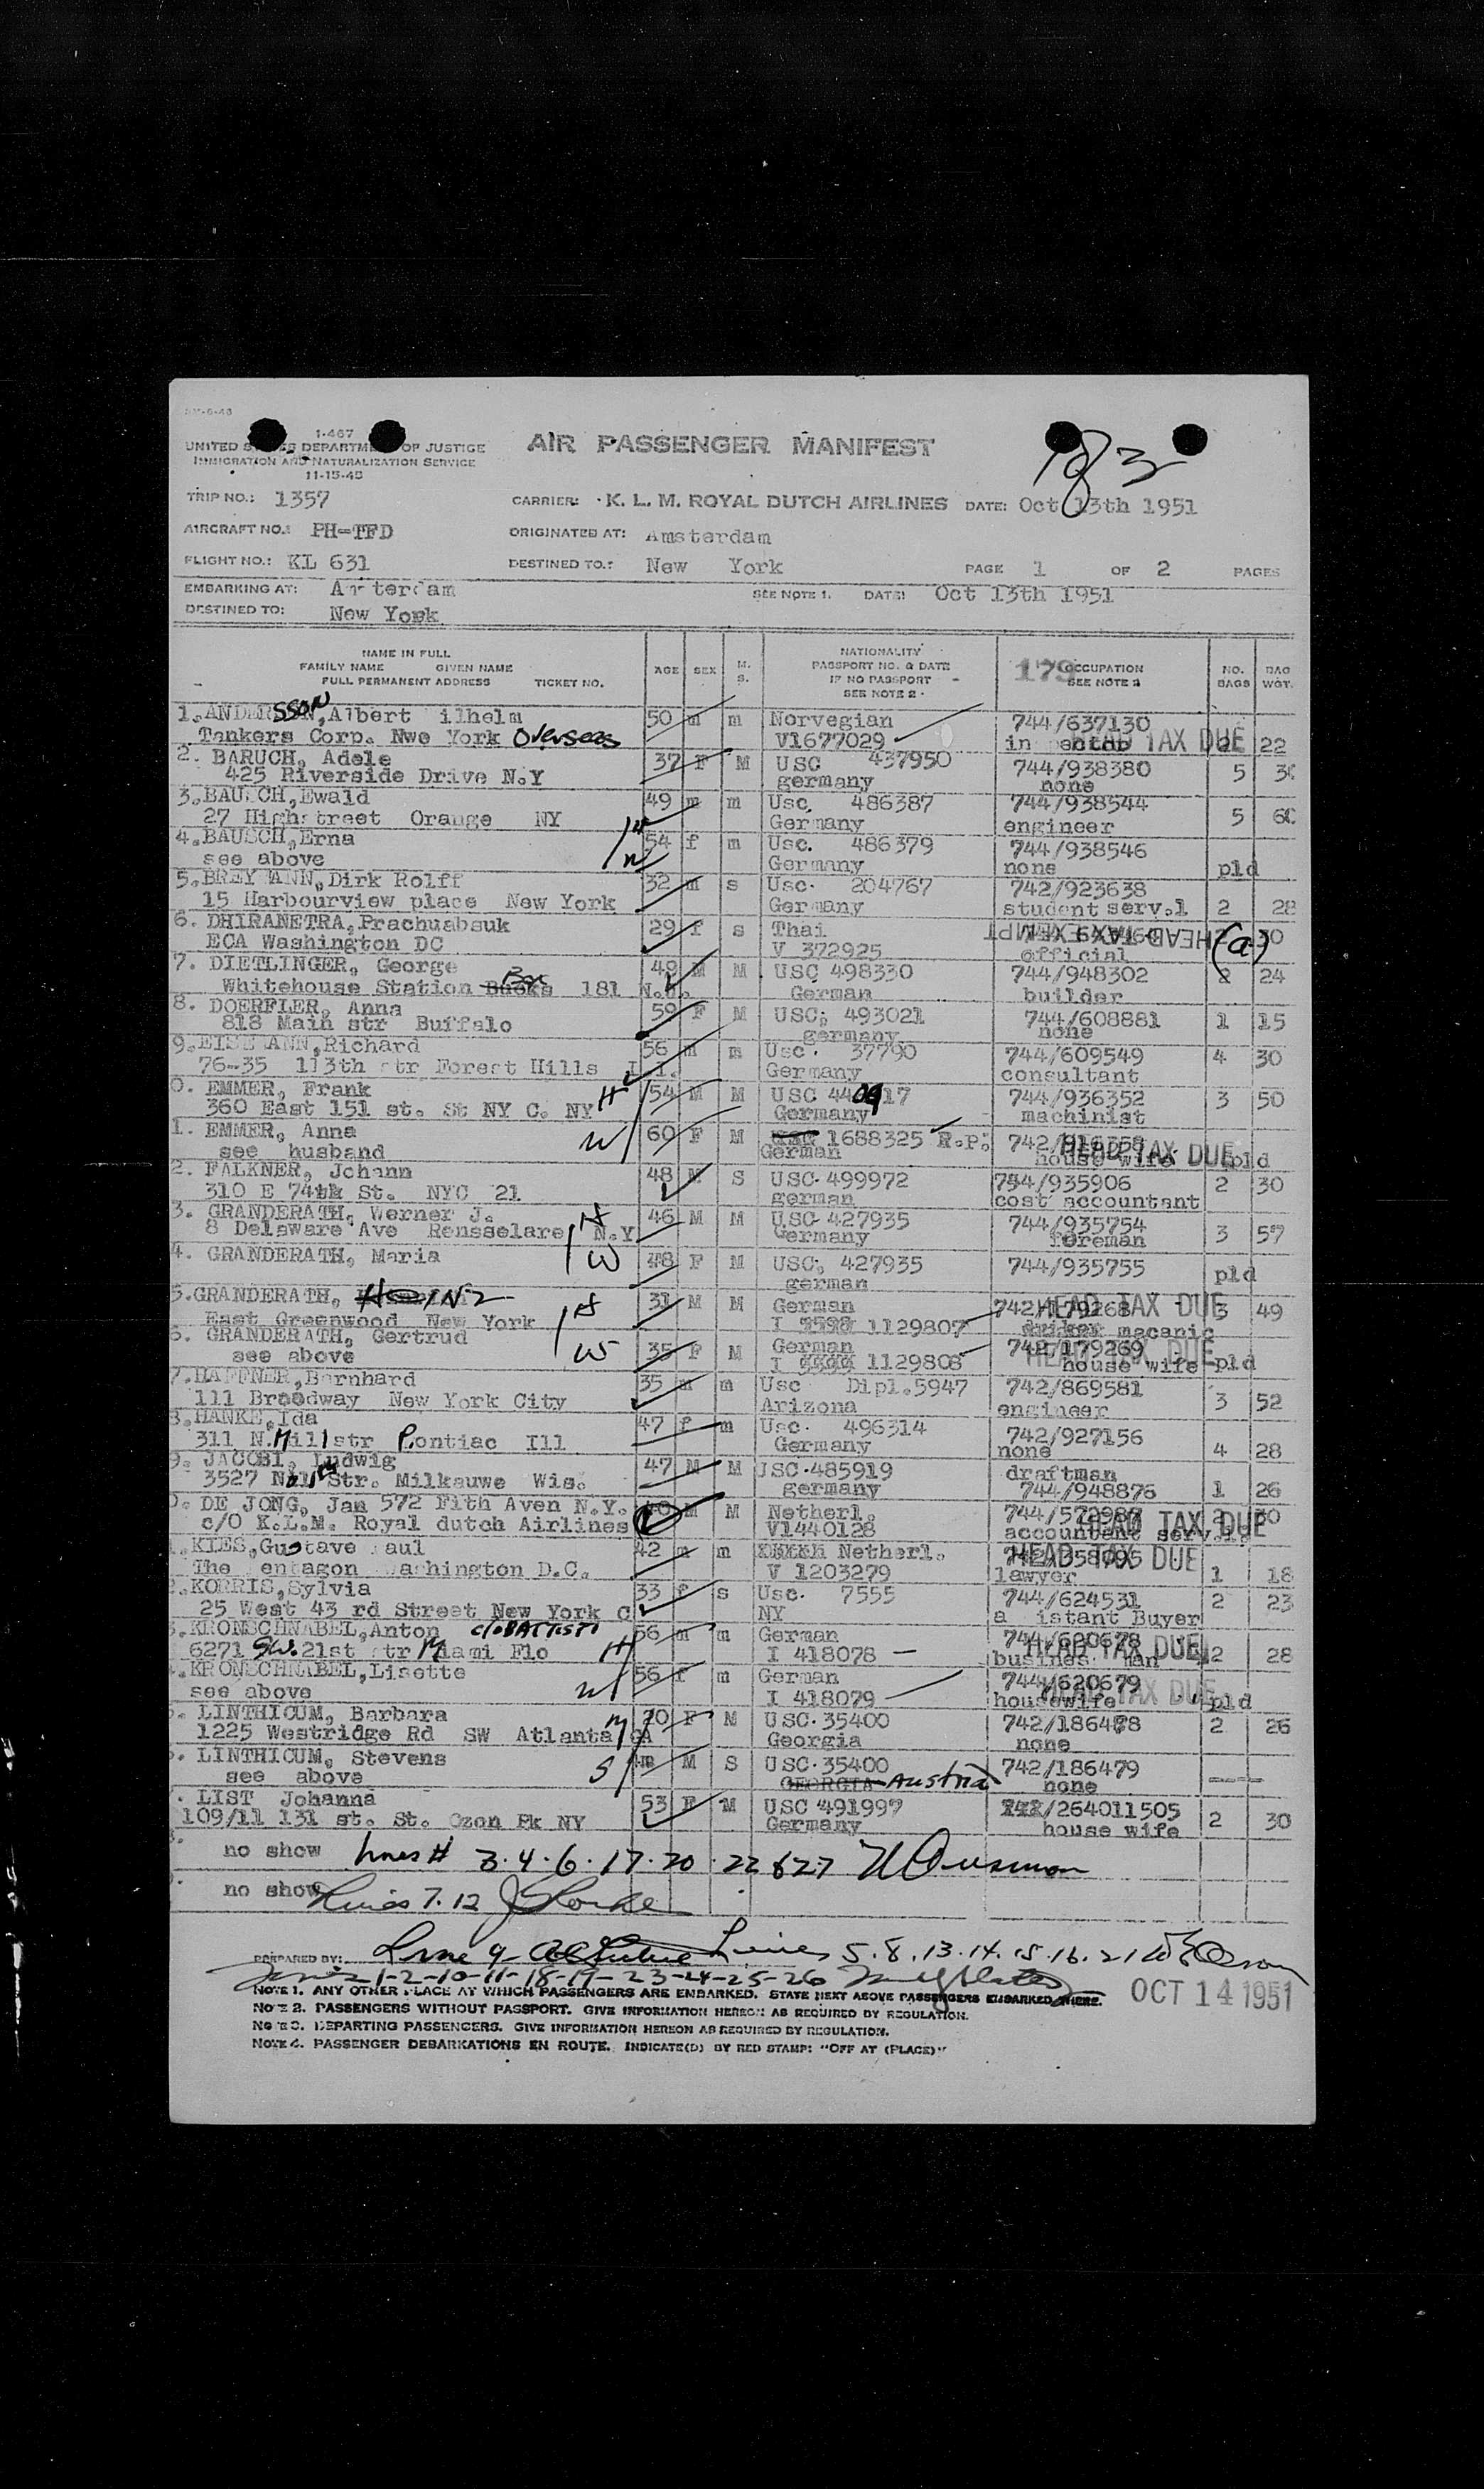 1-467
UNITED STATES DEPARTMENT OF JUSTICE
IMMIGRATION AND NATURALIZATION SERVICE
11-15-45
AIR PASSENGER MANIFEST
TRIP NO.: 1357 CARRIER: K. L. M. ROYAL DUTCH AIRLINES DATE: Oct 13th 1951
AIRCRAFT NO.: PH-TFD ORIGINATED AT: Amsterdam
FLIGHT NO.: KL 631 DESTINED TO.: New York PAGE 1 OF 2 PAGES
EMBARKING AT: Am terdam SEE NOTE 1. DATE: Oct 13th 1951
DESTINED TO: New York
NAME IN FULL
FAMILY NAME GIVEN NAME
FULL PERMANENT ADDRESS TICKET NO.
AGE SEX M. S.
NATIONALITY
PASSPORT NO. & DATE
IF NO PASSPORT
SEE NOTE 2
179 OCCUPATION
SEE NOTE 3
NO. BAGS BAG WGT.
1. ANDERSSON, Albert ilhelm 50 m m Norvegian 744/637130
Tankers Corp. Nwe York Overseas V1677029 HEAD TAX DUE 22
2. BARUCH, Adele 37 F M USC 437950 744/938380
425 Riverside Drive N.Y germany none 5
3. BAUSCH, Ewald 49 m m Usc. 486387 744/938544
27 Highstreet Orange NY Germany engineer 5
4. BAUSCH, Erna 54 f m Usc. 486379 744/938546
see above Germany none pld
5. BREY ANN, Dirk Rolff 32 m s Usc. 204767 742/923638
15 Harbourview place New York Germany student serv.1 2 28
6. DHIRANETRA, Prachuabsuk 29 f s Thai HEAD TAX EXEMPT (a)
ECA Washington DC V 372925 official
7. DIETLINGER, George 49 M M USC 498330 744/948302
Whitehouse Station Box 181 N.J. German builder 2 24
8. DOERFLER, Anna 59 F M USC; 493021 744/608881
818 Main str Buffalo germany none 1 15
9. EISE ANN, Richard 56 m m Usc. 37790 744/609549 4 30
76-35 113th str Forest Hills L.I. Germany consultant
0. EMMER, Frank H 54 M M USC 440917 744/936352 3 50
360 East 151 st. St NY C. NY Germany machinist
1. EMMER, Anna W 60 F M 1688325 R.P. HEAD TAX DUE
see husband German house wife pld
2. FALKNER, Johann 48 M S USC. 499972 744/935906 2 30
310 E 74th St. NYC 21 german cost accountant
3. GRANDERATH, Werner J. H 46 M M USC 427935 744/935754
8 Delaware Ave Rensselare N.Y Germany foreman 3 57
4. GRANDERATH, Maria W 48 F M USC, 427935 744/935755
german pld
5. GRANDERATH, HEINZ H 31 M M German 742/179268 HEAD TAX DUE 3 49
East Greenwood New York I 1129807 macanic
6. GRANDERATH, Gertrud W 35 F M German 742/179269 HEAD TAX DUE
see above I 1129808 house wife pld
7. HAFFNER, Bernhard 35 m m Usc Dipl.5947 742/869581
111 Broadway New York City Arizona engineer 3 52
8. HANKE, Ida 47 f m Usc. 496314 742/927156
311 N. Mill str Pontiac Ill Germany none 4 28
9. JACOBI, Ludwig 47 M M USC.485919 draftman
3527 N Str. Milkauwe Wis. germany 744/948876 1 26
0. DE JONG, Jan 572 Fith Aven N.Y. 40 M M Netherl. HEAD TAX DUE
c/O K.L.M. Royal dutch Airlines V1440128 accountant
1. KIES, Gustave aul 42 m m Netherl. HEAD TAX DUE
The entagon ashington D.C. V 1203279 lawyer 1 18
2. KORRIS, Sylvia 33 f s Usc. 7555 744/624531 2 23
25 West 43 rd Street New York C NY a istant Buyer
3. KRONSCHNABEL, Anton c/o BATTISTI H 56 m m German 744/620678 HEAD TAX DUE
6271 SW. 21st str Miami Flo I 418078 busines man 2 28
4. KRONSCHNABEL, Lisette W 56 f m German 744/620679 HEAD TAX DUE
see above I 418079 housewife pld
5. LINTHICUM, Barbara M F M USC.35400 742/186478 2 26
1225 Westridge Rd SW Atlanta GA Georgia none
6. LINTHICUM, Stevens S M S USC.35400 742/186479
see above GEORGIA Austria none
7. LIST Johanna 53 F M USC 491997 /264011505
109/11 131 st. St. Ozon Pk NY Germany house wife 2 30
no show lines # 3.4.6.17.20.22 & 27
no show Lines 7.12
PREPARED BY: Line 9 Lines 5.8.13.14.15.16.21
Lines 1-2-10-11-18-19-23-24-25-26
OCT 14 1951
NOTE 1. ANY OTHER PLACE AT WHICH PASSENGERS ARE EMBARKED. STATE NEXT ABOVE PASSENGERS EMBARKED THERE.
NOTE 2. PASSENGERS WITHOUT PASSPORT. GIVE INFORMATION HEREON AS REQUIRED BY REGULATION.
NOTE 3. DEPARTING PASSENGERS. GIVE INFORMATION HEREON AS REQUIRED BY REGULATION.
NOTE 4. PASSENGER DEBARKATIONS EN ROUTE. INDICATE(D) BY RED STAMP: "OFF AT (PLACE)"